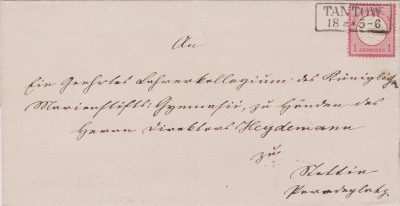 TANTOW
18 2/4 5-6
1 GROSCHEN 1
An
Ein Geehrtes Lehrerkollegium des Königlichen
Marienstifts-Gymnasii, zu Händen des
Herrn Direktors Heydemann
zu
Stettin
Paradeplatz.